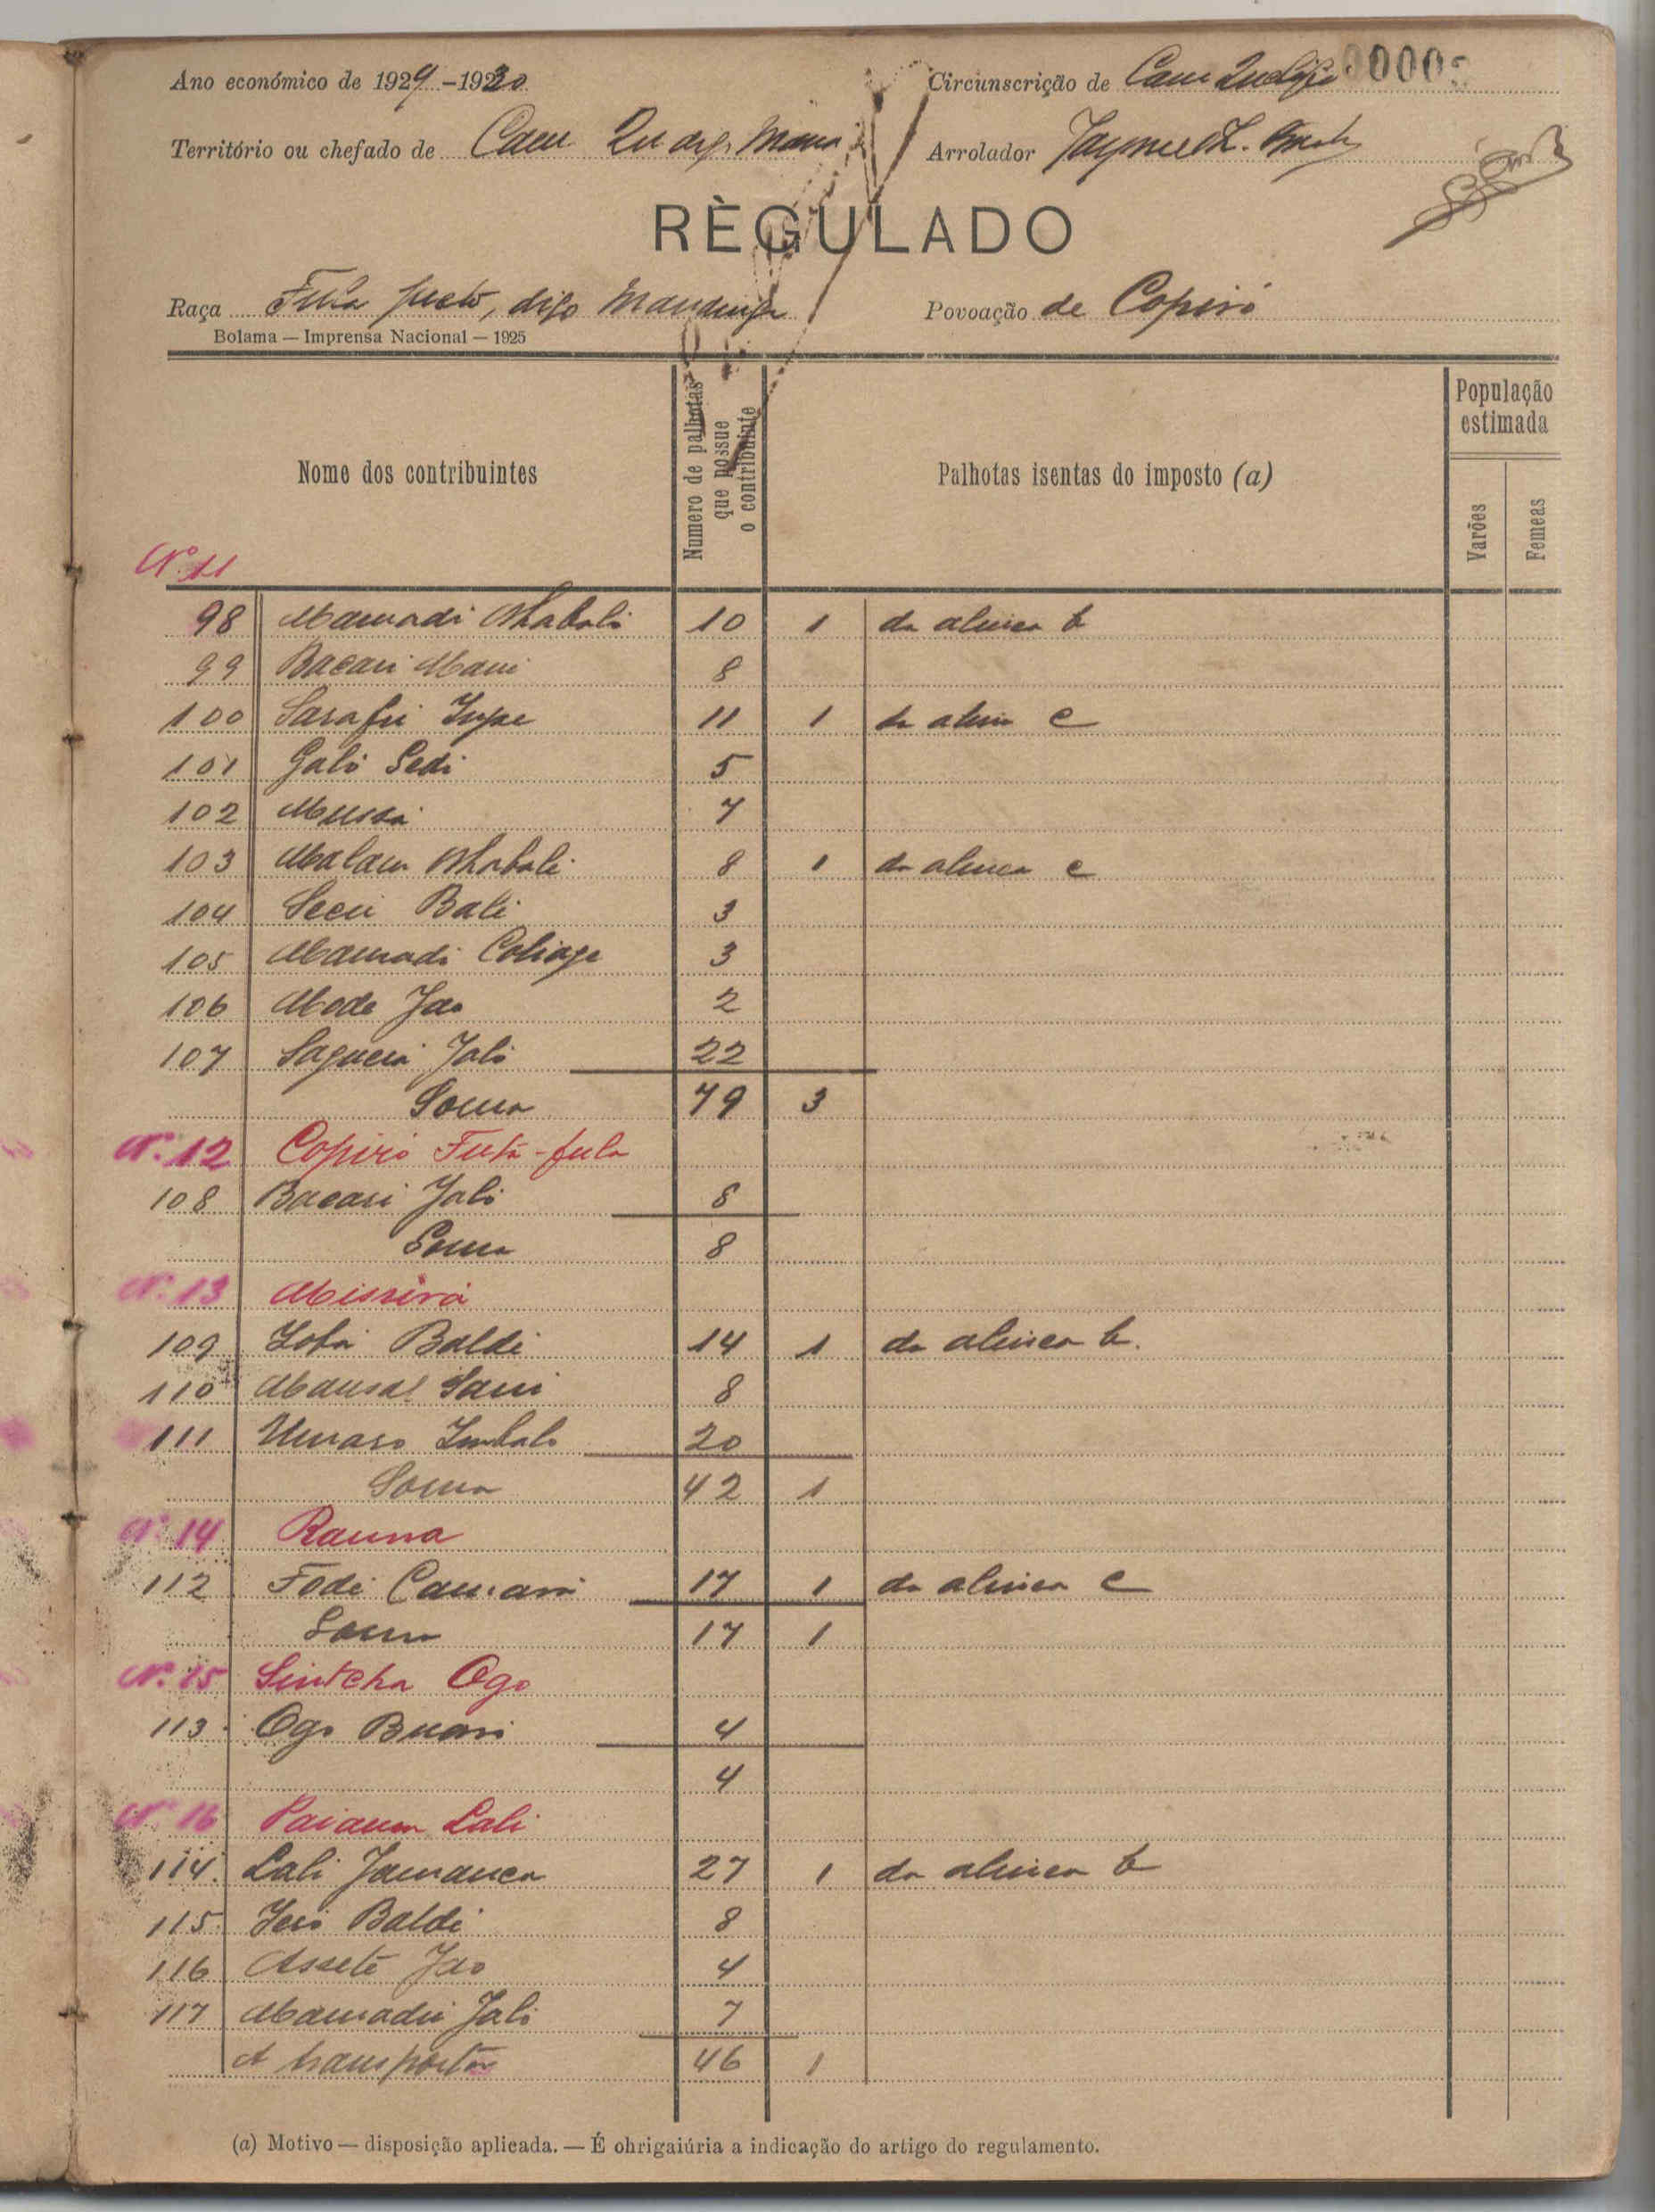 Ano económico de 1929-1930
Circunscrição de
Território ou chefado de
Arrolador
RÈGULADO
Raça Fula preto, digo Mandinga
Povoação de Copiró
Bolama — Imprensa Nacional — 1925
Nome dos contribuintes
Numero de palhotas que possue o contribuinte
Palhotas isentas do imposto (a)
População estimada
Varões
Femeas
Nº 11
98 Mamadi 10 1 da alinea b
99 Bacari Mani 8
100 11 1 da alinea c
101 Galó Sedi 5
102 Mussá 7
103 Malam 8 1 da alinea c
104 Secu Bali 3
105 Mamadi 3
106 Mode Jao 2
107 Jaló 22
Soma 79 3
Nº 12 Copiró Futa-fula
108 Bacari Jaló 8
Soma 8
Nº 13 Missirá
109 Baldé 14 1 da alinea b.
110 Mansal Sani 8
111 Umaro Embaló 20
Soma 42 1
Nº 14
112 Fodé Camará 17 1 da alinea c
Soma 17 1
Nº 15 Sintcha Ogo
113 Ogo 4
4
Nº 16 Lali
114 Lali Jamanca 27 1 da alinea b
115 Baldé 8
116 Asseté Jao 4
117 Mamadú Jaló 7
A transportar 46 1
(a) Motivo — disposição aplicada. — É ohrigaiúria a indicação do artigo do regulamento.